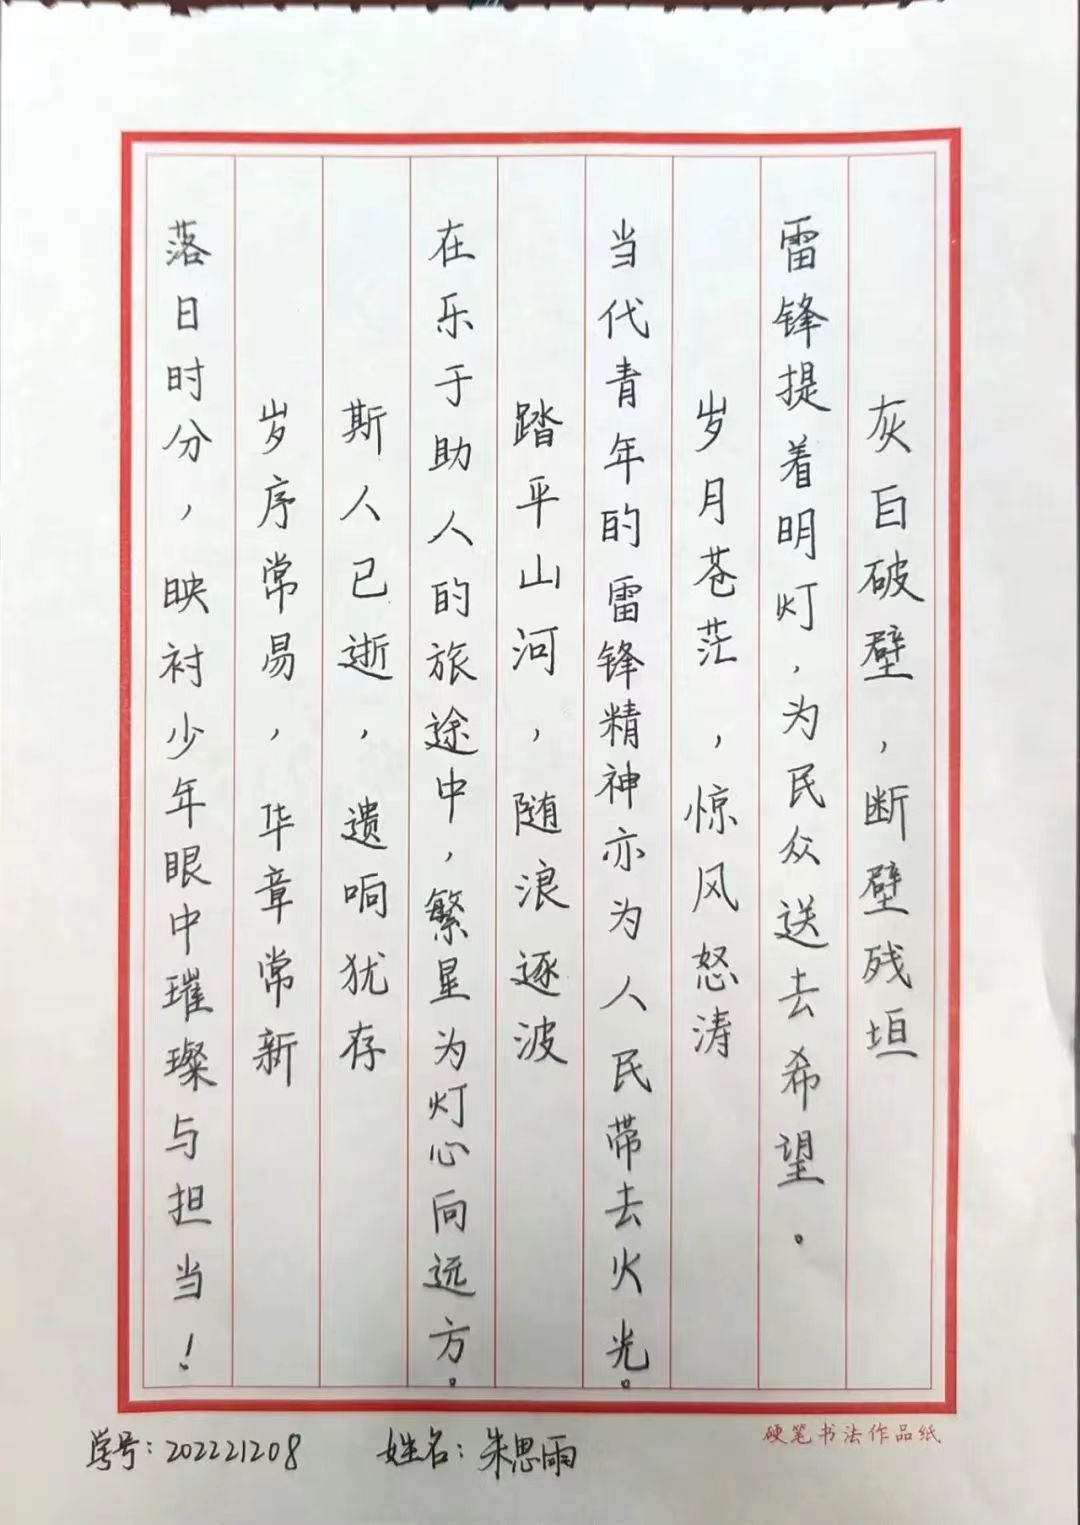 灰白破壁，断壁残垣
雷锋提着明灯，为民众送去希望。
岁月苍茫，惊风怒涛
当代青年的雷锋精神亦为人民带去火光。
踏平山河，随浪逐波
在乐于助人的旅途中，繁星为灯心向远方。
斯人已逝，遗响犹存
岁序常易，华章常新
落日时分，映衬少年眼中璀璨与担当！
硬笔书法作品纸
学号：202221208 姓名：朱思雨